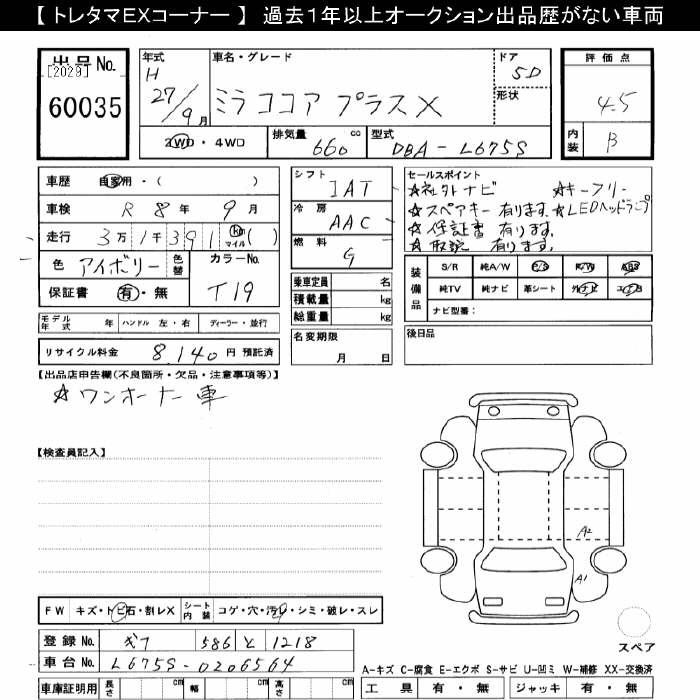 【 トレタマEXコーナー 】 過去1年以上オークション出品歴がない車両
出品No.
[2029]
60035
年式
H
27/9月
車名・グレード
ミラ ココア プラス X
ドア
5D
形状
評価点
4.5
内装
B
2WD・4WD
排気量
660 cc
型式
DBA - L675S
車歴 自家用・( )
車検 R 8年 9月
走行 3万1千391 km マイル ( )
色 アイボリー 色替
カラーNo.
T19
保証書 有・無
シフト
IAT
冷房
AAC
燃料
G
乗車定員 名
積載量 kg
総重量 kg
名変期限
月 日
セールスポイント
☆社外ナビ ☆キーフリー
☆スペアキー有ります。☆LEDヘッドランプ
☆保証書 有ります。
☆取説 有ります。
装備品
S/R 純A/W P/S P/W ABS
純TV 純ナビ 革シート 外ナビ エアB
ナビ型番:
後日品
モデル年式 年 ハンドル 左・右 ディーラー・並行
リサイクル料金 8,140 円 預託済
【出品店申告欄(不良箇所・欠品・注意事項等)】
☆ワンオーナー車
【検査員記入】
A2
A1
FW キズ・トビ石・割レX シート内装 コゲ・穴・汚レ・シミ・破レ・スレ
登録No. 586 と 1218
車台No. L675S-0206564
車庫証明用 長さ cm 幅 cm 高さ cm
スペア
A-キズ C-腐食 E-エクボ S-サビ U-凹ミ W-補修 XX-交換済
工具 有・無 ジャッキ 有・無